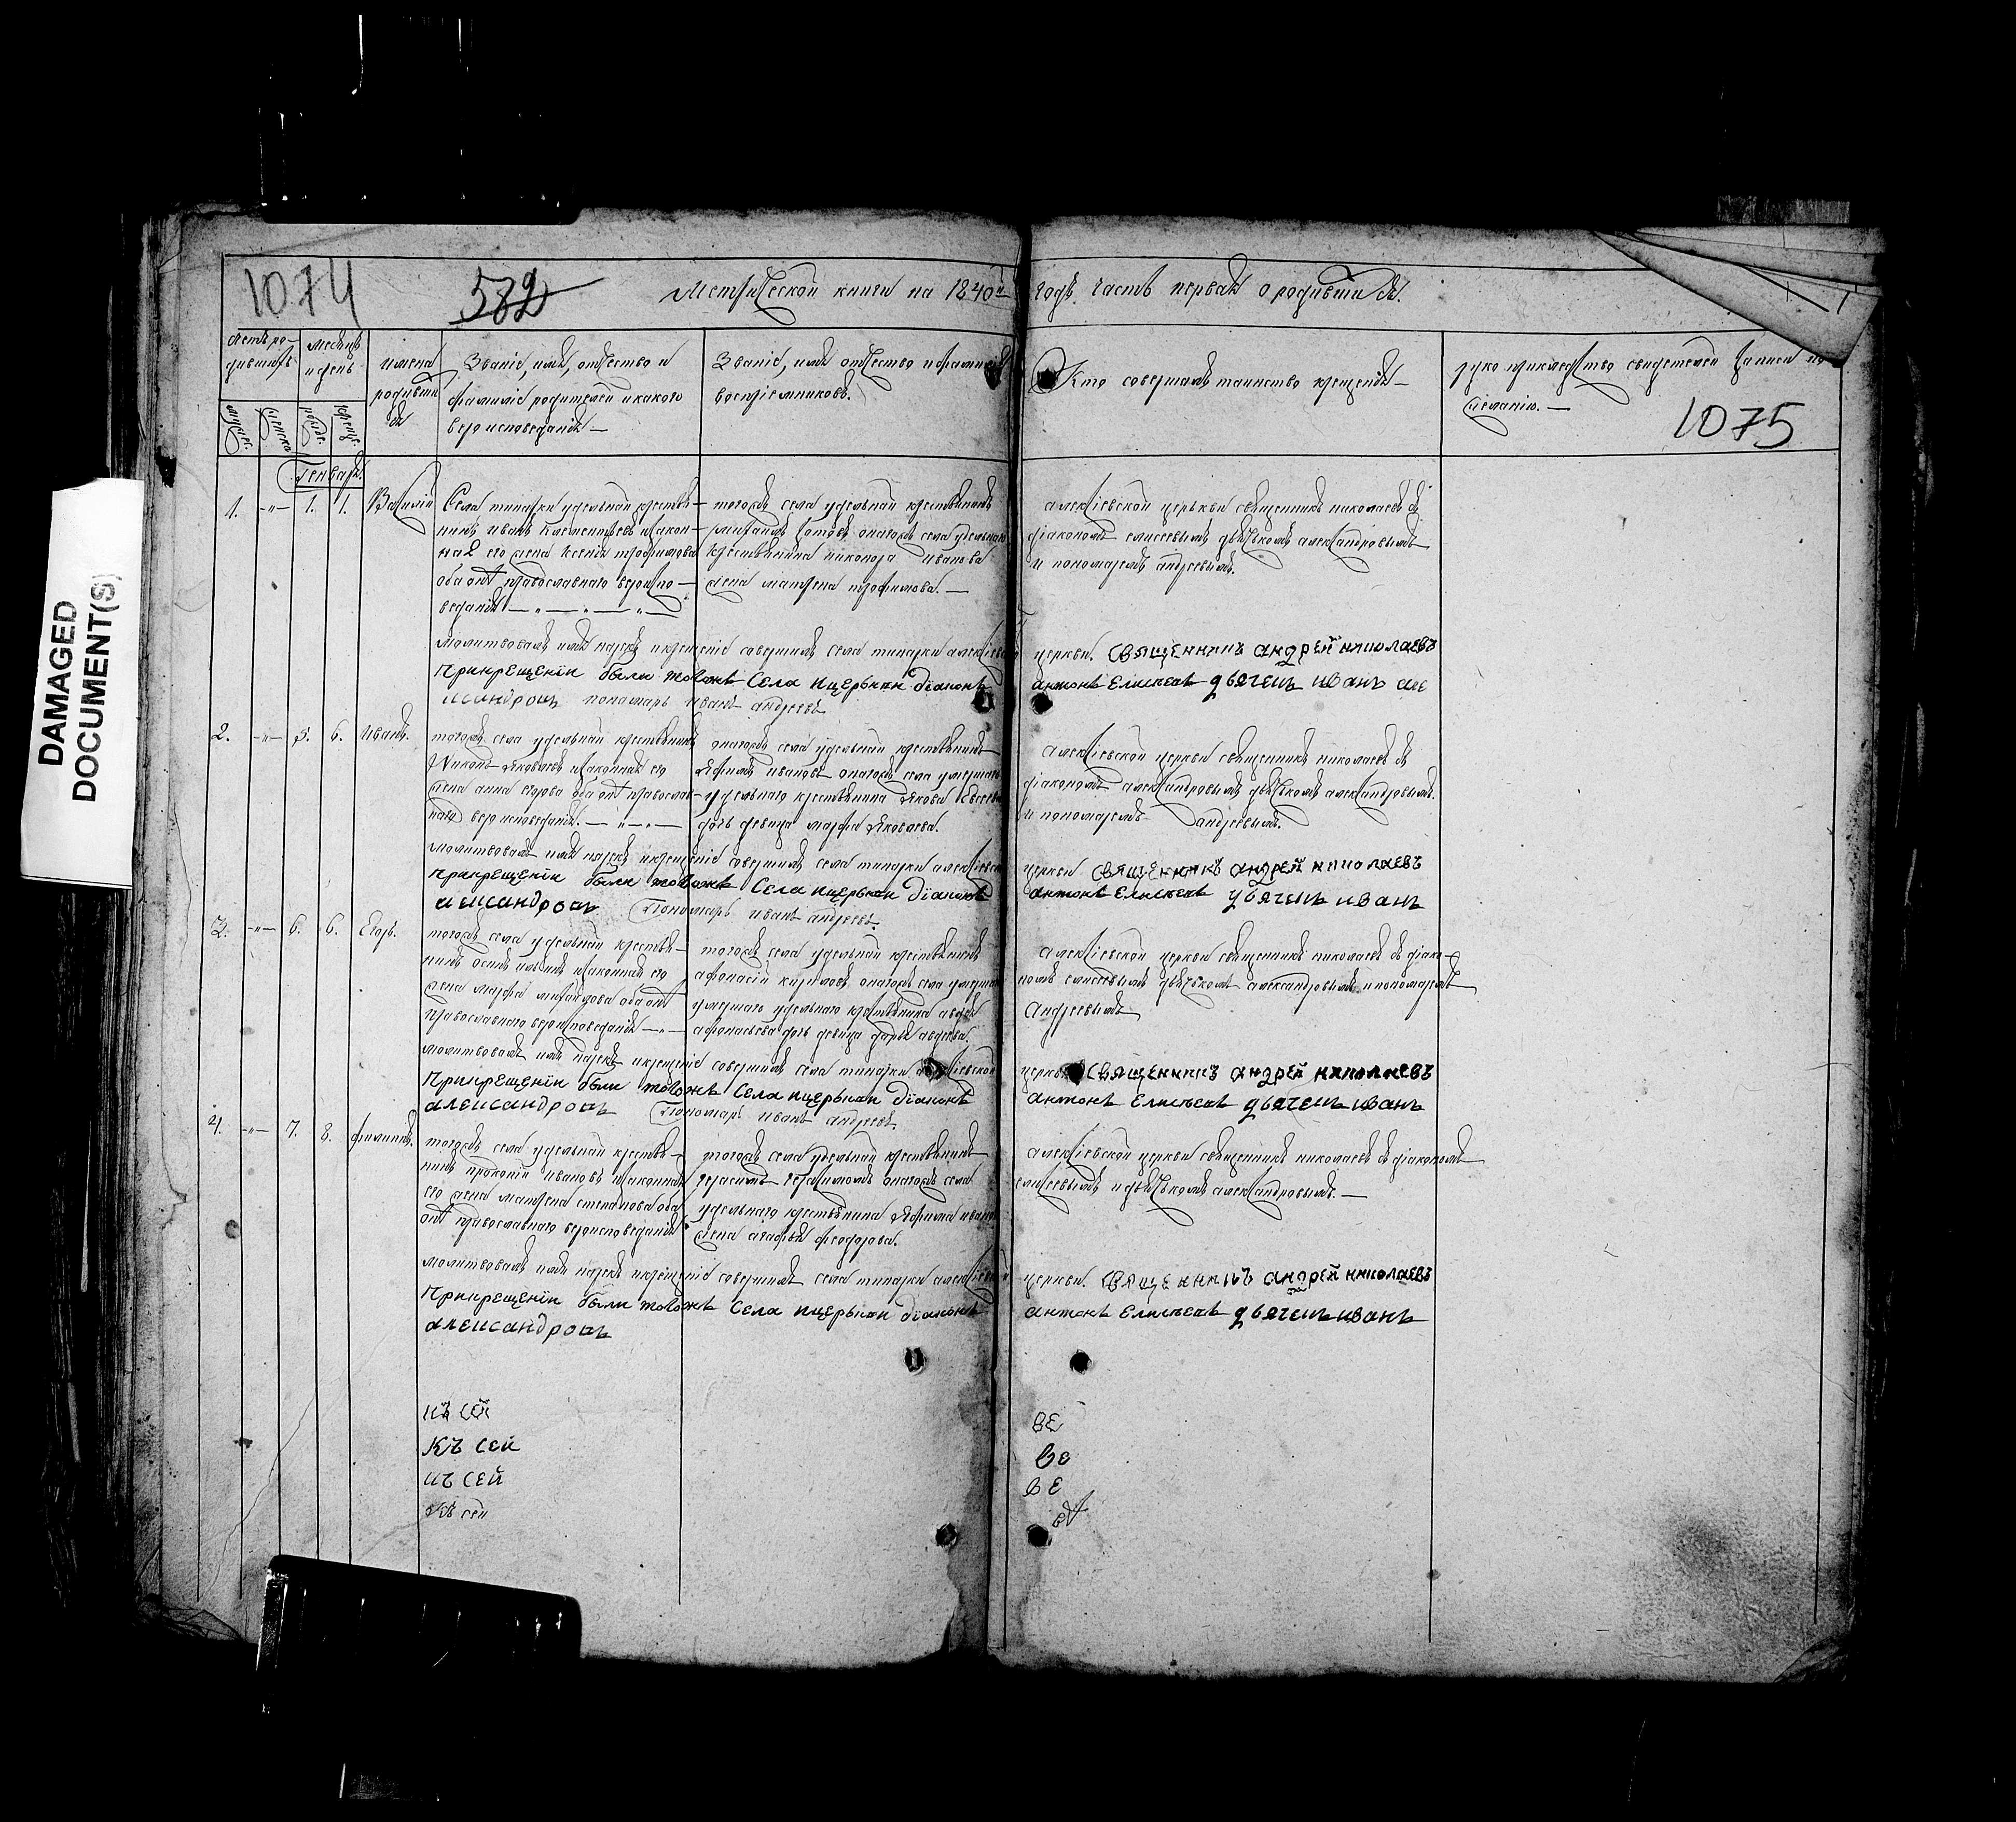 DAMAGED
DOCUMENT(S)
1074
582
Метрической книги на 1840й
годъ. часть первая о родившихся.
1075
мѣсяцъ
и день
имена
родивши
ся
Званіе, имя, отчество и
фамиліе родителей и какого
вероисповеданія —
Званіе, имя, отчество и фамиліе
воспріемниковъ.
Кто совершалъ таинство крещенія —
рукоприкладство свидетелей записи по
желанію. —
Генварь.
1. —„— 1. 1. Василій
Села тинарки удельный крестья-
нинъ иванъ Климентьевъ и закон-
ная его жена ксенія трофимова
оба православнаго вероиспо-
веданія — „ — „ — „ —
тогожъ села удельный крестьянинъ
тогожъ села удельнаго
крестьянина никонора иванова
жена матрена трофимова. —
алексіевской церькви священникъ николаевъ съ
діакономъ елисеевымъ дьячькомъ александровымъ
и пономаремъ андреевымъ.
молитвовалъ имя нарекъ и крещеніе совершилъ села тинарки алексіевской
церкви. священникъ андрей николаевъ
прикрещении были тогоже села ицерькви діаконъ
антонъ Елисѣевъ дьячекъ иванъ але
ксандровъ пономарь иванъ андреевъ
2. —„— 5. 6. Иванъ.
тогожъ села удельный крестьянинъ
Никонъ яковлевъ и законная его
жена анна егорова оба православ-
наго вероисповеданія. — „ — „ —
тогожъ села удельный крестьянинъ
Ефимъ ивановъ тогожъ села умершаго
удельнаго крестьянина якова
дочь девица марфа яковлева.
алексіевской церкви священникъ николаевъ съ
діакономъ александровымъ дьячькомъ александровымъ.
и пономаремъ андреевымъ.
молитвовалъ имя нарекъ и крещеніе совершилъ села тинарки алексіевской
церкви священникъ андрей николаевъ
прикрещении были тогоже села ицерькви діаконъ
антонъ Елисѣевъ дьячекъ иванъ
александровъ Пономарь иванъ андреевъ.
3. —„— 6. 6. Егоръ.
тогожъ села удельный крестья-
нинъ осипъ ильинъ и законная его
жена марфа михайлова оба
православнаго вероисповеданія —„—
тогожъ села удельный крестьянинъ
афонасій кириловъ тогожъ села умершаго
умершаго удельнаго крестьянина авдея
афонасьева дочь девица дарья авдеева.
алексіевской церкви священникъ николаевъ съ діако-
номъ елисеевымъ дьячькомъ александровымъ и пономаремъ
Андреевымъ
молитвовалъ имя нарекъ и крещеніе совершилъ села тинарки алексіевской
церкви священникъ андрей николаевъ
Прикрещении были тогоже села ицерькви діаконъ
антонъ Елисѣевъ дьячекъ иванъ
александровъ Пономарь иванъ андреевъ.
4. —„— 7. 8. филиппъ.
тогожъ села удельный крестья-
нинъ прокопій ивановъ и законная
его жена матрена степанова оба
православнаго вероисповеданія
тогожъ села удельный крестьянинъ
герасимъ тогожъ села
удельнаго крестьянина Ефима иванова
жена агафья феодорова.
алексіевской церкви священникъ николаевъ съ діакономъ
елисеевымъ и дьячькомъ александровымъ. —
молитвовалъ имя нарекъ и крещеніе совершилъ села тинарки алексіевской
церкви. священникъ андрей николаевъ
Прикрещении были тогоже села ицерькви діаконъ
антонъ Елисѣевъ дьячекъ иванъ
александровъ
къ сей
ве
Къ сей
ве
къ сей
ве
Къ сей